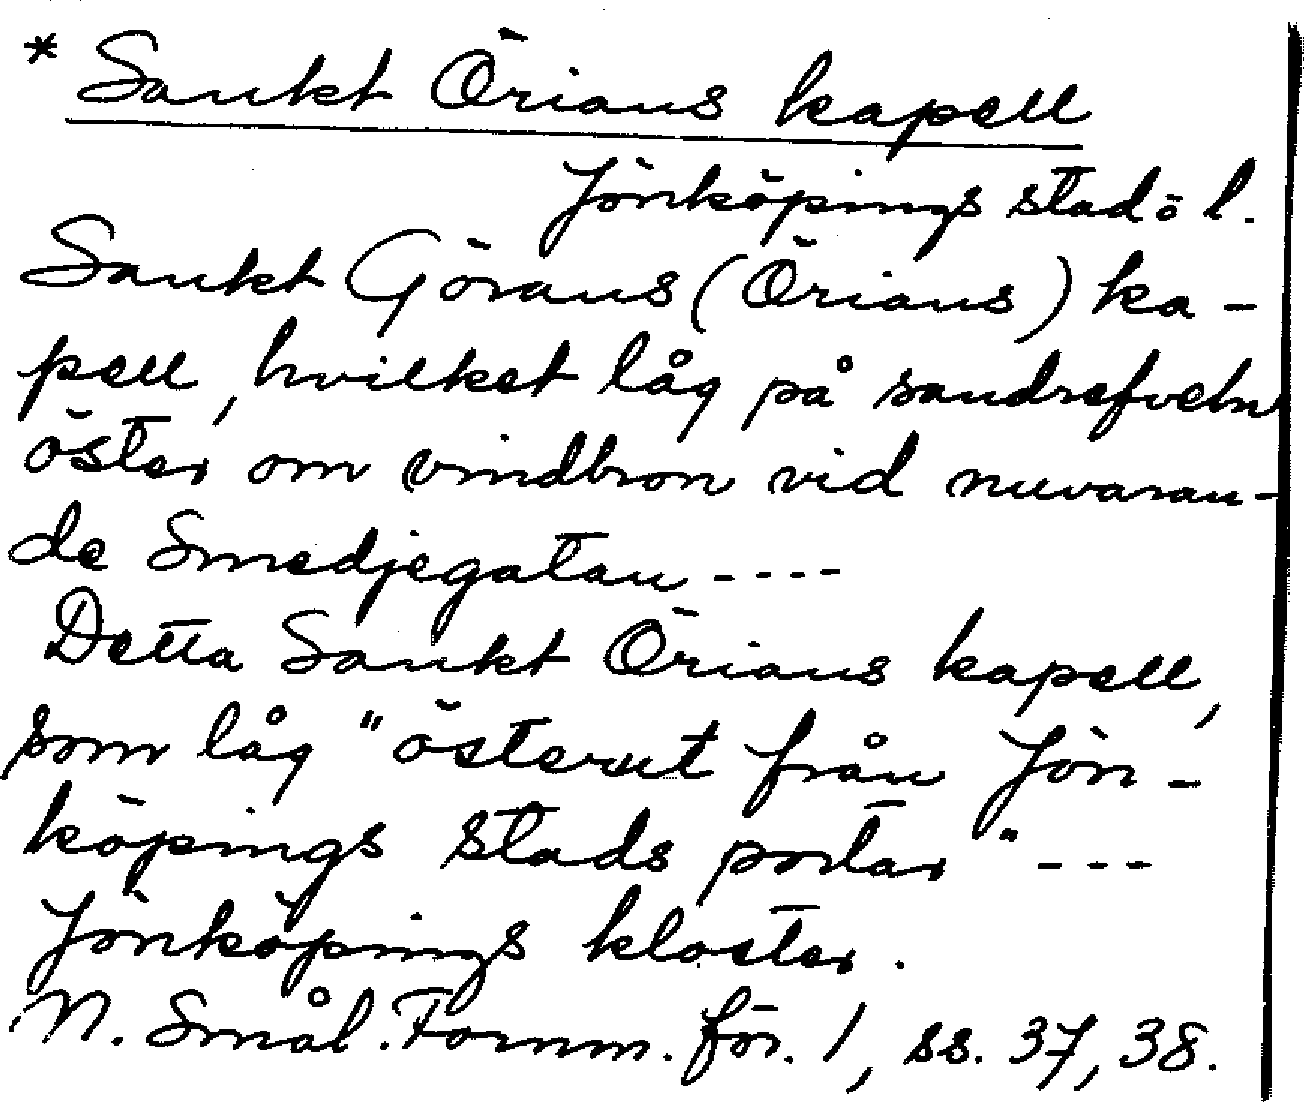 * Sankt Örians kapell
Jönköpings stad ö l.
Sankt Görans (Örians) ka-
pell, hvilket låg på sandrefveln
öster om vindbron vid nuvaran-
de Smedjegatan ----
Detta Sankt Örians kapell,
som låg "österut från Jön-
köpings stads portar" ---
Jönköpings kloster.
N. Smål. Fornm. för. 1, ss. 37, 38.